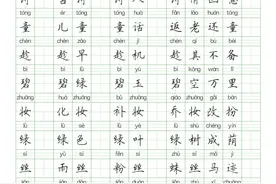 tóng ér tóng tóng huà fǎn lǎo hái tóng
童 儿 童 童 话 返 老 还 童
chèn chèn zǎo chèn jī chèn qí bú bèi
趁 趁 早 趁 机 趁 其 不 备
bì bì lǜ bì yù bì kōng wàn lǐ
碧 碧 绿 碧 玉 碧 空 万 里
zhuāng huà zhuāng bǔ zhuāng qiáo zhuāng gǎi bàn
妆 化 妆 补 妆 乔 妆 改 扮
lǜ lǜ sè lǜ yè lǜ shù chéng yīn
绿 绿 色 绿 叶 绿 树 成 荫
sī yǔ sī fěn sī zhū sī mǎ jì
丝 雨 丝 粉 丝 蛛 丝 马 迹